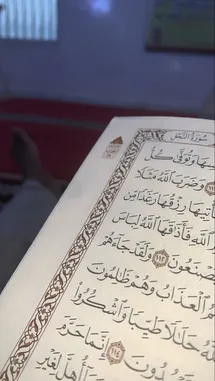 سُورَةُ النَّحْلِ
سِهَا وَتُوَفَّىٰ كُلُّ
وَضَرَبَ ٱللَّهُ مَثَلًا
تِيهَا رِزْقُهَا رَغَدًا مِّن
ٱللَّهِ فَأَذَٰقَهَا ٱللَّهُ لِبَاسَ
صْنَعُونَ ١١٢ وَلَقَدْ جَآءَهُمْ
مُ ٱلْعَذَابُ وَهُمْ ظَٰلِمُونَ
ٱللَّهُ حَلَٰلًا طَيِّبًا وَٱشْكُرُوا۟
بُدُونَ ١١٤ إِنَّمَا حَرَّمَ
مَآ أُهِلَّ لِغَيْرِ